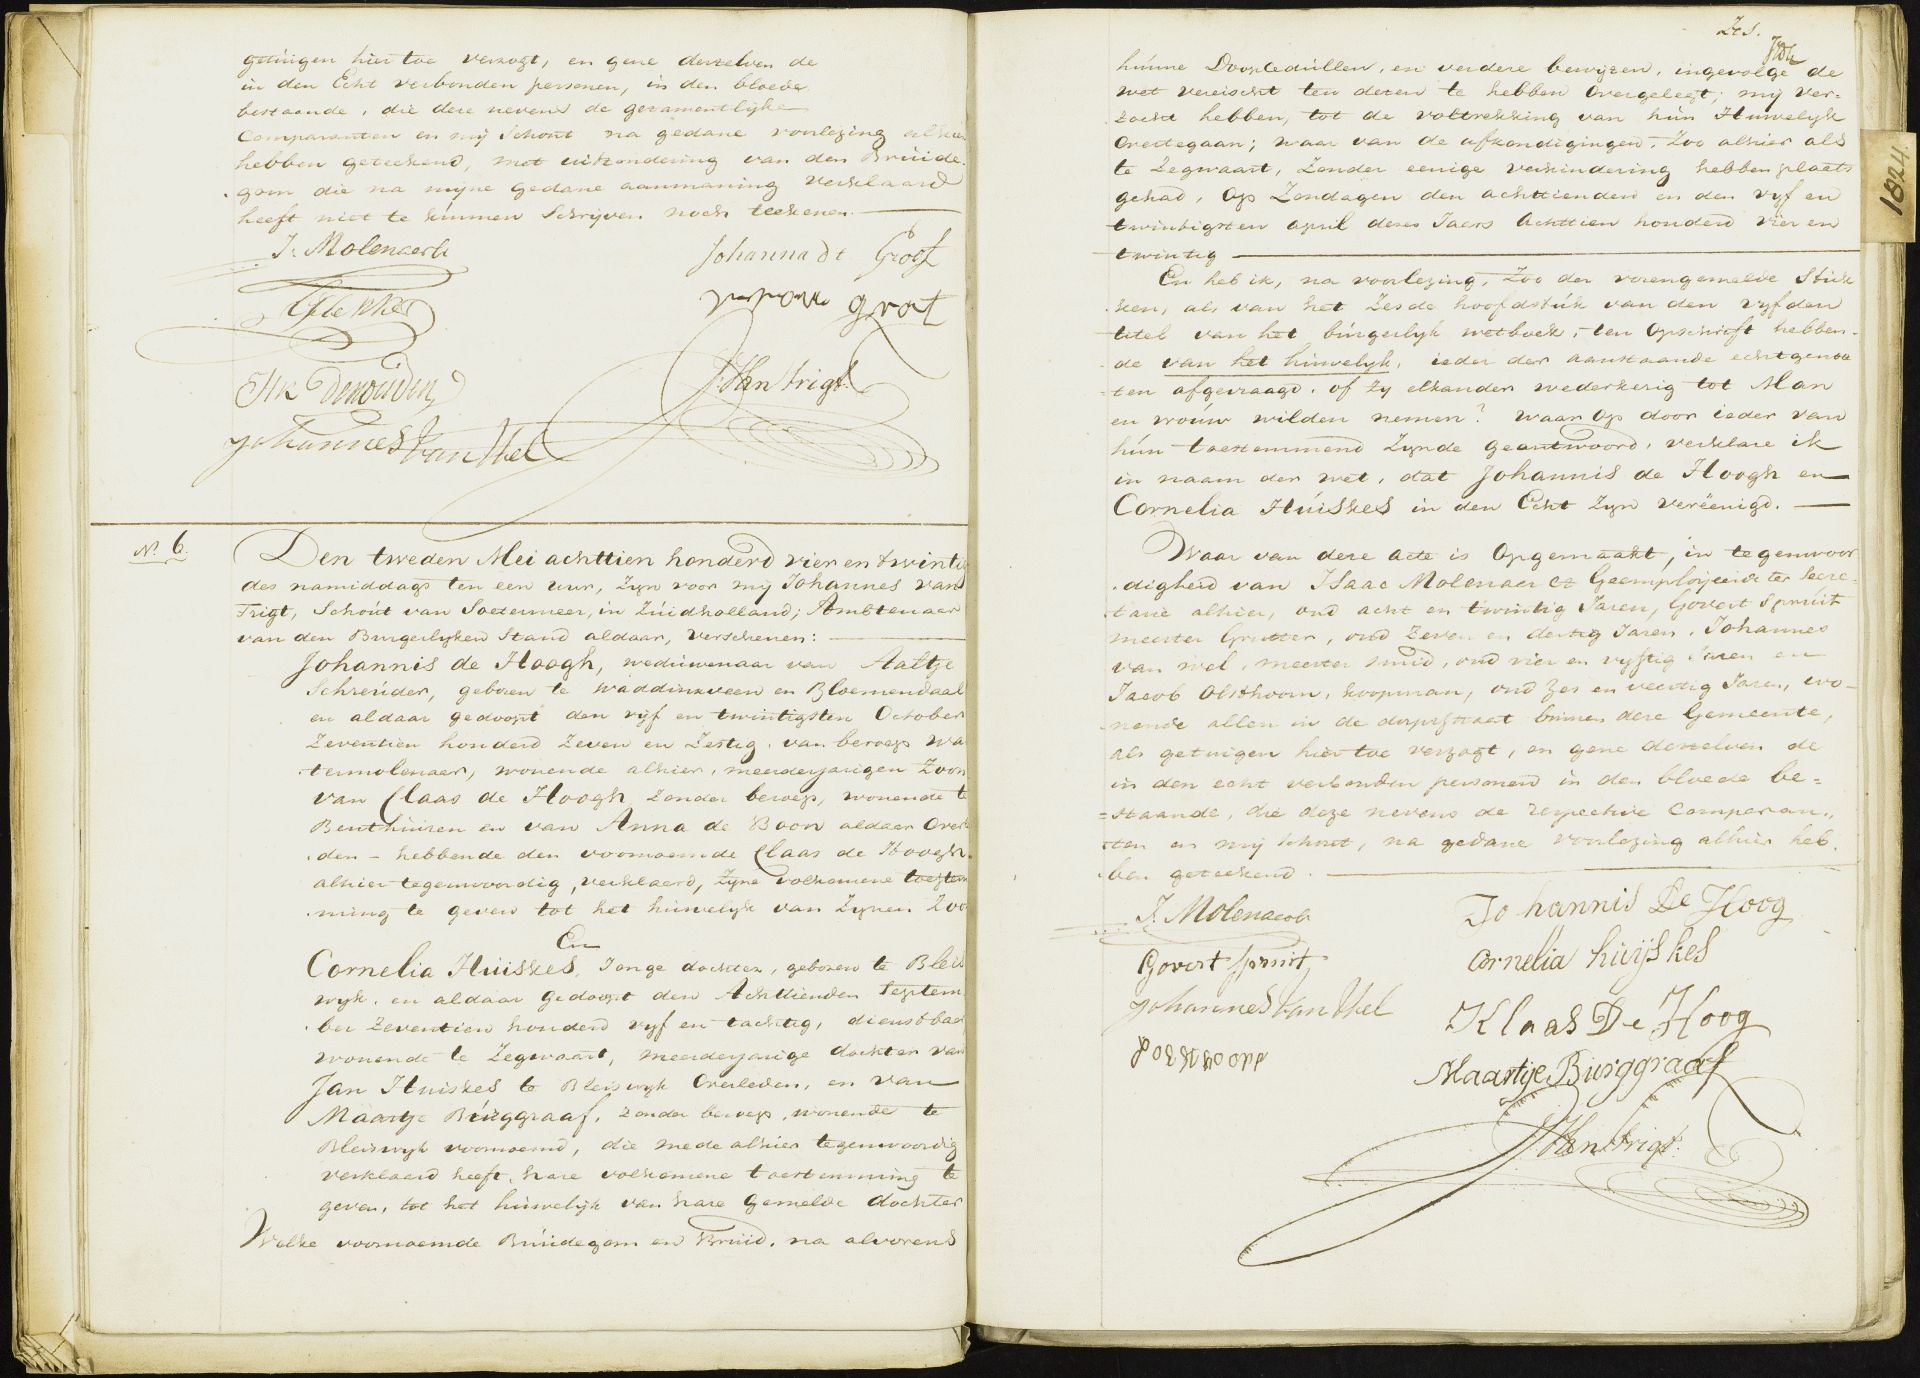 getuigen hier toe verzogt, en gene derzelven de
in den Echt verbonden personen, in den bloede
bestaande, die deze nevens de gezamentlijke
Comparanten en mij Schout na gedane voorlezing alhier
hebben geteekend, met uitzondering van den Bruide-
gom die na mijne gedane aanmaning verklaard
heeft niet te kunnen Schrijven noch teekenen.
I. Molenaer
Johanna de Groot
groot
JHK Denouden
J. Van Trigt
Johannes Van Wel
No. 6.
Den tweden Mei achttien honderd vier en twintig
des namiddags ten een uur, Zyn voor mij Johannes van
Trigt, Schout van Soetermeer, in Zuidholland, Ambtenaar
van den Burgerlyken Stand aldaar, verschenen:
Johannis de Hoogh, weduwenaar van Aaltje
Schreuder, geboren te Waddinxveen en Bloemendaal
en aldaar gedoopt den vijf en twintigsten October
Zeventien honderd Zeven en Zestig, van beroep wa
termolenaar, wonende alhier, meerderjarigen Zoon
van Claas de Hoogh Zonder beroep, wonende te
Benthuizen en van Anna de Boon aldaar Overle
den - hebbende den voornoemde Claas de Hoogh
alhier tegenwoordig, verklaard, Zijne volkomene toestem
ming te geven tot het huwelyk van Zynen Zoo
En
Cornelia Huiskes, Jonge dochter, geboren te Bleis
wyk, en aldaar gedoopt den Achttienden Septem
ber Zeventien honderd vyf en tachtig, dienstbaa
wonende te Zegwaart, meerderjarige dochter van
Jan Huiskes te Bleiswyk Overleden, en van
Maartje Burggraaf, Zonder beroep, wonende te
Bleiswyk voornoemd, die mede alhier tegenwoordig
verklaard heeft, hare volkomene toestemming te
geven, tot het huwelyk van hare gemelde dochter
Welke voornoemde Bruidegom en Bruid, na alvorens
Zes.
hunne Doopcedullen, en verdere bewyzen, ingevolge de
wet vereischt ten dezen te hebben Overgelegt; my ver-
zocht hebben, tot de voltrekking van hun Huwelyk
Overtegaan; waar van de afkondigingen, Zoo alhier als
te Zegwaart, Zonder eenige verhindering hebben plaats
gehad, Op Zondagen den achttienden en den vyf en
twintigsten april dezes Jaars Achttien honderd vier en
twintig
En heb ik, na voorlezing, Zoo der vorengemelde Stuk
ken, als van het Zesde hoofdstuk van den vyfden
titel van het burgerlyk wetboek, ten Opschrift hebben-
de van het huwelyk, ieder der aanstaande echtgenoo
ten afgevraagd, of zy elkander wederkerig tot Man
en vrouw wilden nemen? waar op door ieder van
hun toestemmend Zynde geantwoord, verklare ik
in naam der wet, dat Johannis de Hoogh en
Cornelia Huiskes in den Echt Zyn vereenigd.
Waar van deze acte is Opgemaakt, in tegenwoor
digheid van Isaac Molenaer Geemployeerde ter Secre-
tarie alhier, oud acht en twintig Jaren, Govert Spruit
meester Grutter, oud Zeven en dertig Jaren, Johannes
van wel, meester smid, oud vier en vyftig Jaren en
Jacob Olsthoorn, koopman, oud Zes en veertig Jaren, wo-
nende allen in de dorpstraat binnen deze Gemeente,
als getuigen hiertoe verzogt, en gene derzelven de
in den echt verbonden personen in den bloede be=
staande, die deze nevens de respective Comparan,,
ten en mij Schout, na gedane voorlezing alhier heb
ben geteekend.
I. Molenaer
Johannis De Hoog
Govert spruit
Cornelia huijskes
Johannes Van Wel
Klaas De Hoog
Maartije Burggraaf
J Van Trigt
1824